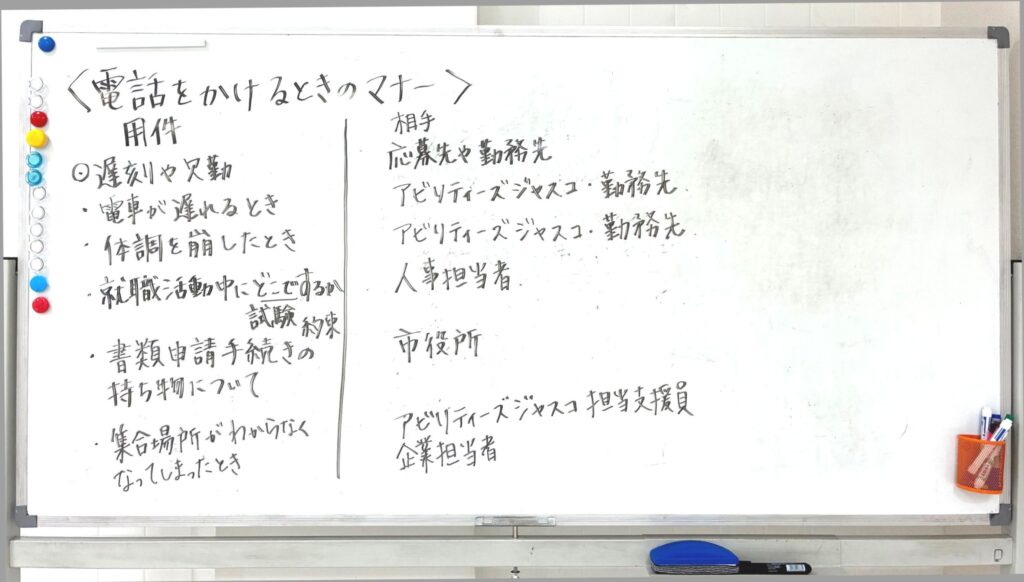 〈電話をかけるときのマナー〉
用件
⊙遅刻や欠勤
・電車が遅れるとき
・体調を崩したとき
・就職活動中にどこでするか
試験 約束
・書類申請手続きの
持ち物について
・集合場所がわからなく
なってしまったとき
相手
応募先や勤務先
アビリティーズジャスコ・勤務先
アビリティーズジャスコ・勤務先
人事担当者
市役所
アビリティーズジャスコ担当支援員
企業担当者